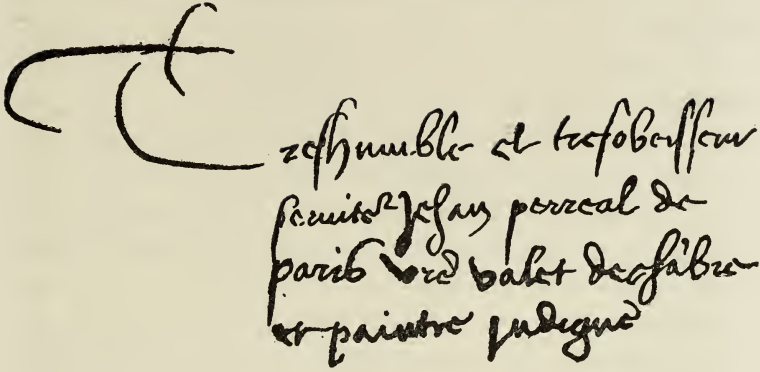 Treshumble et tresobeisseur
seruiteᵣ Jehan perreal de
paris vr̃e valet de chãbre
et paintre Indigne